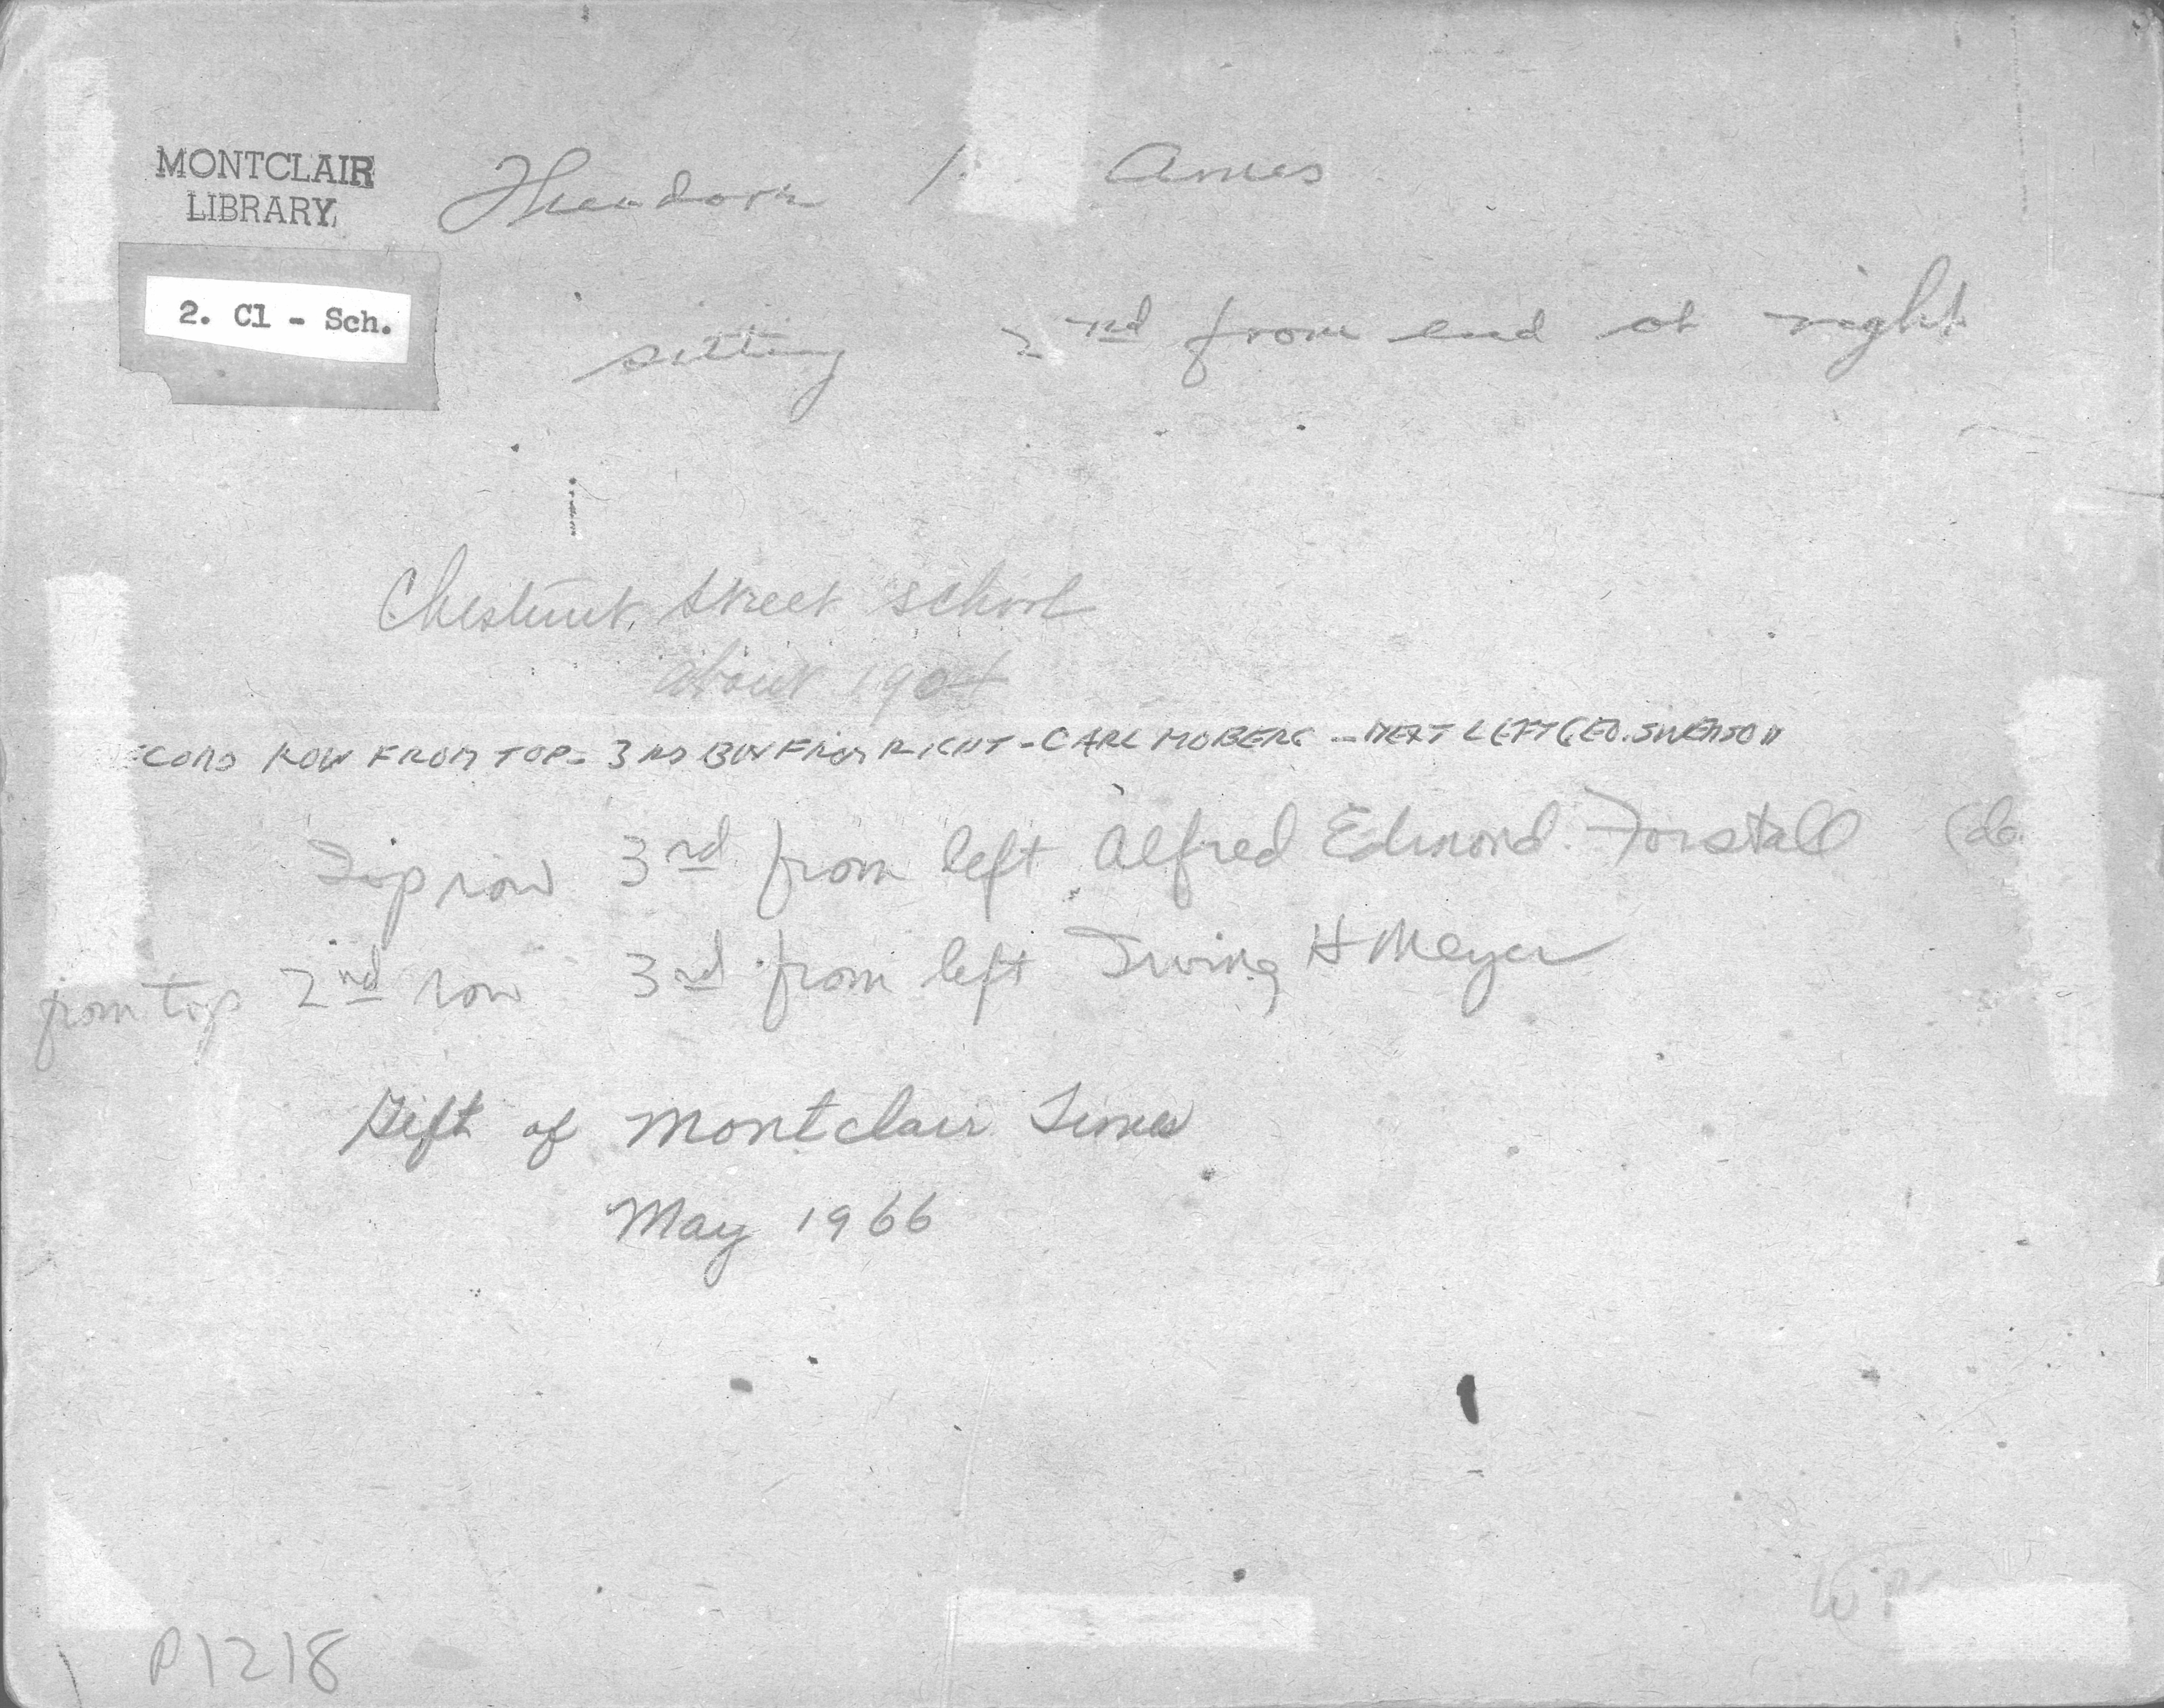 MONTCLAIR
LIBRARY
Theodore Ames
2. Cl - Sch.
sitting 2nd from end at right
Chestnut Street School
about 1904
ECOND ROW FROM TOP - 3RD BOY FROM RIGHT - CARL MOBERG - NEXT LEFT GEO. SWENSON
Top row 3rd from left Alfred Edmond Forstall
from top 2nd row 3rd from left Irving H Meyer
Gift of Montclair Times
May 1966
P1218